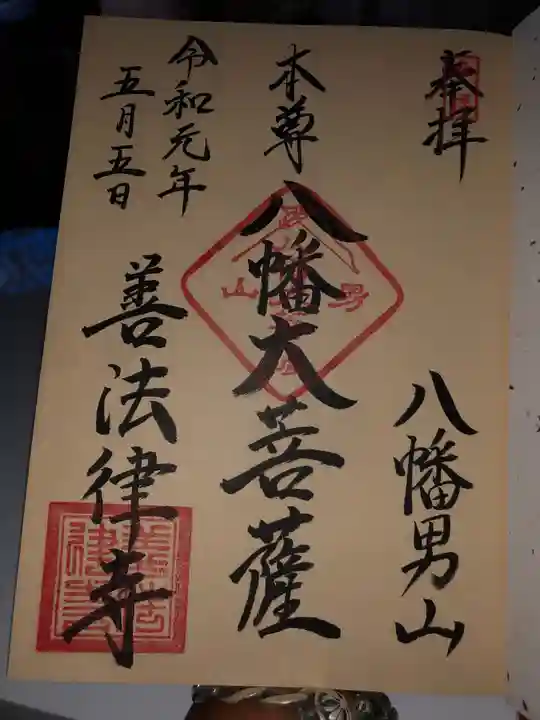 奉拝
八幡男山
本尊
八幡大菩薩
令和元年
五月五日
善法律寺